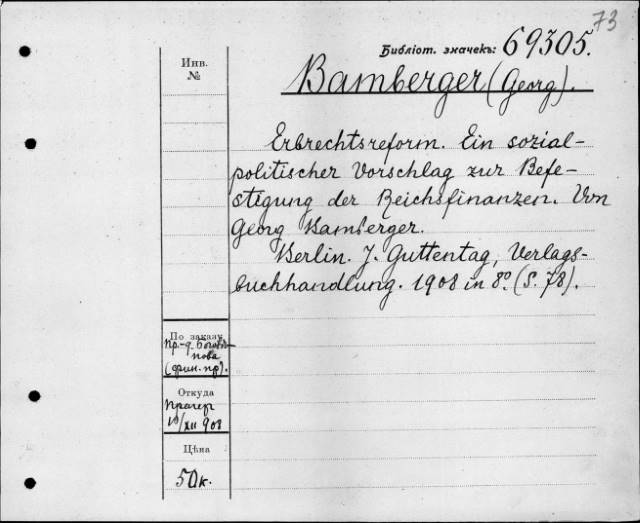 73
Библіот. значекъ: 69305.
Инв.
№
Bamberger (Georg).
Erbrechtsreform. Ein sozial-
politischer Vorschlag zur Befe-
stigung der Reichsfinanzen. Von
Georg Bamberger.
Berlin. J. Guttentag, Verlags-
buchhandlung. 1908 in 8º. (S. 78).
По заказу
пр-д.
нова
(фин. пр).
Откуда
Прагер
10/XII 908
Цѣна
50 к.